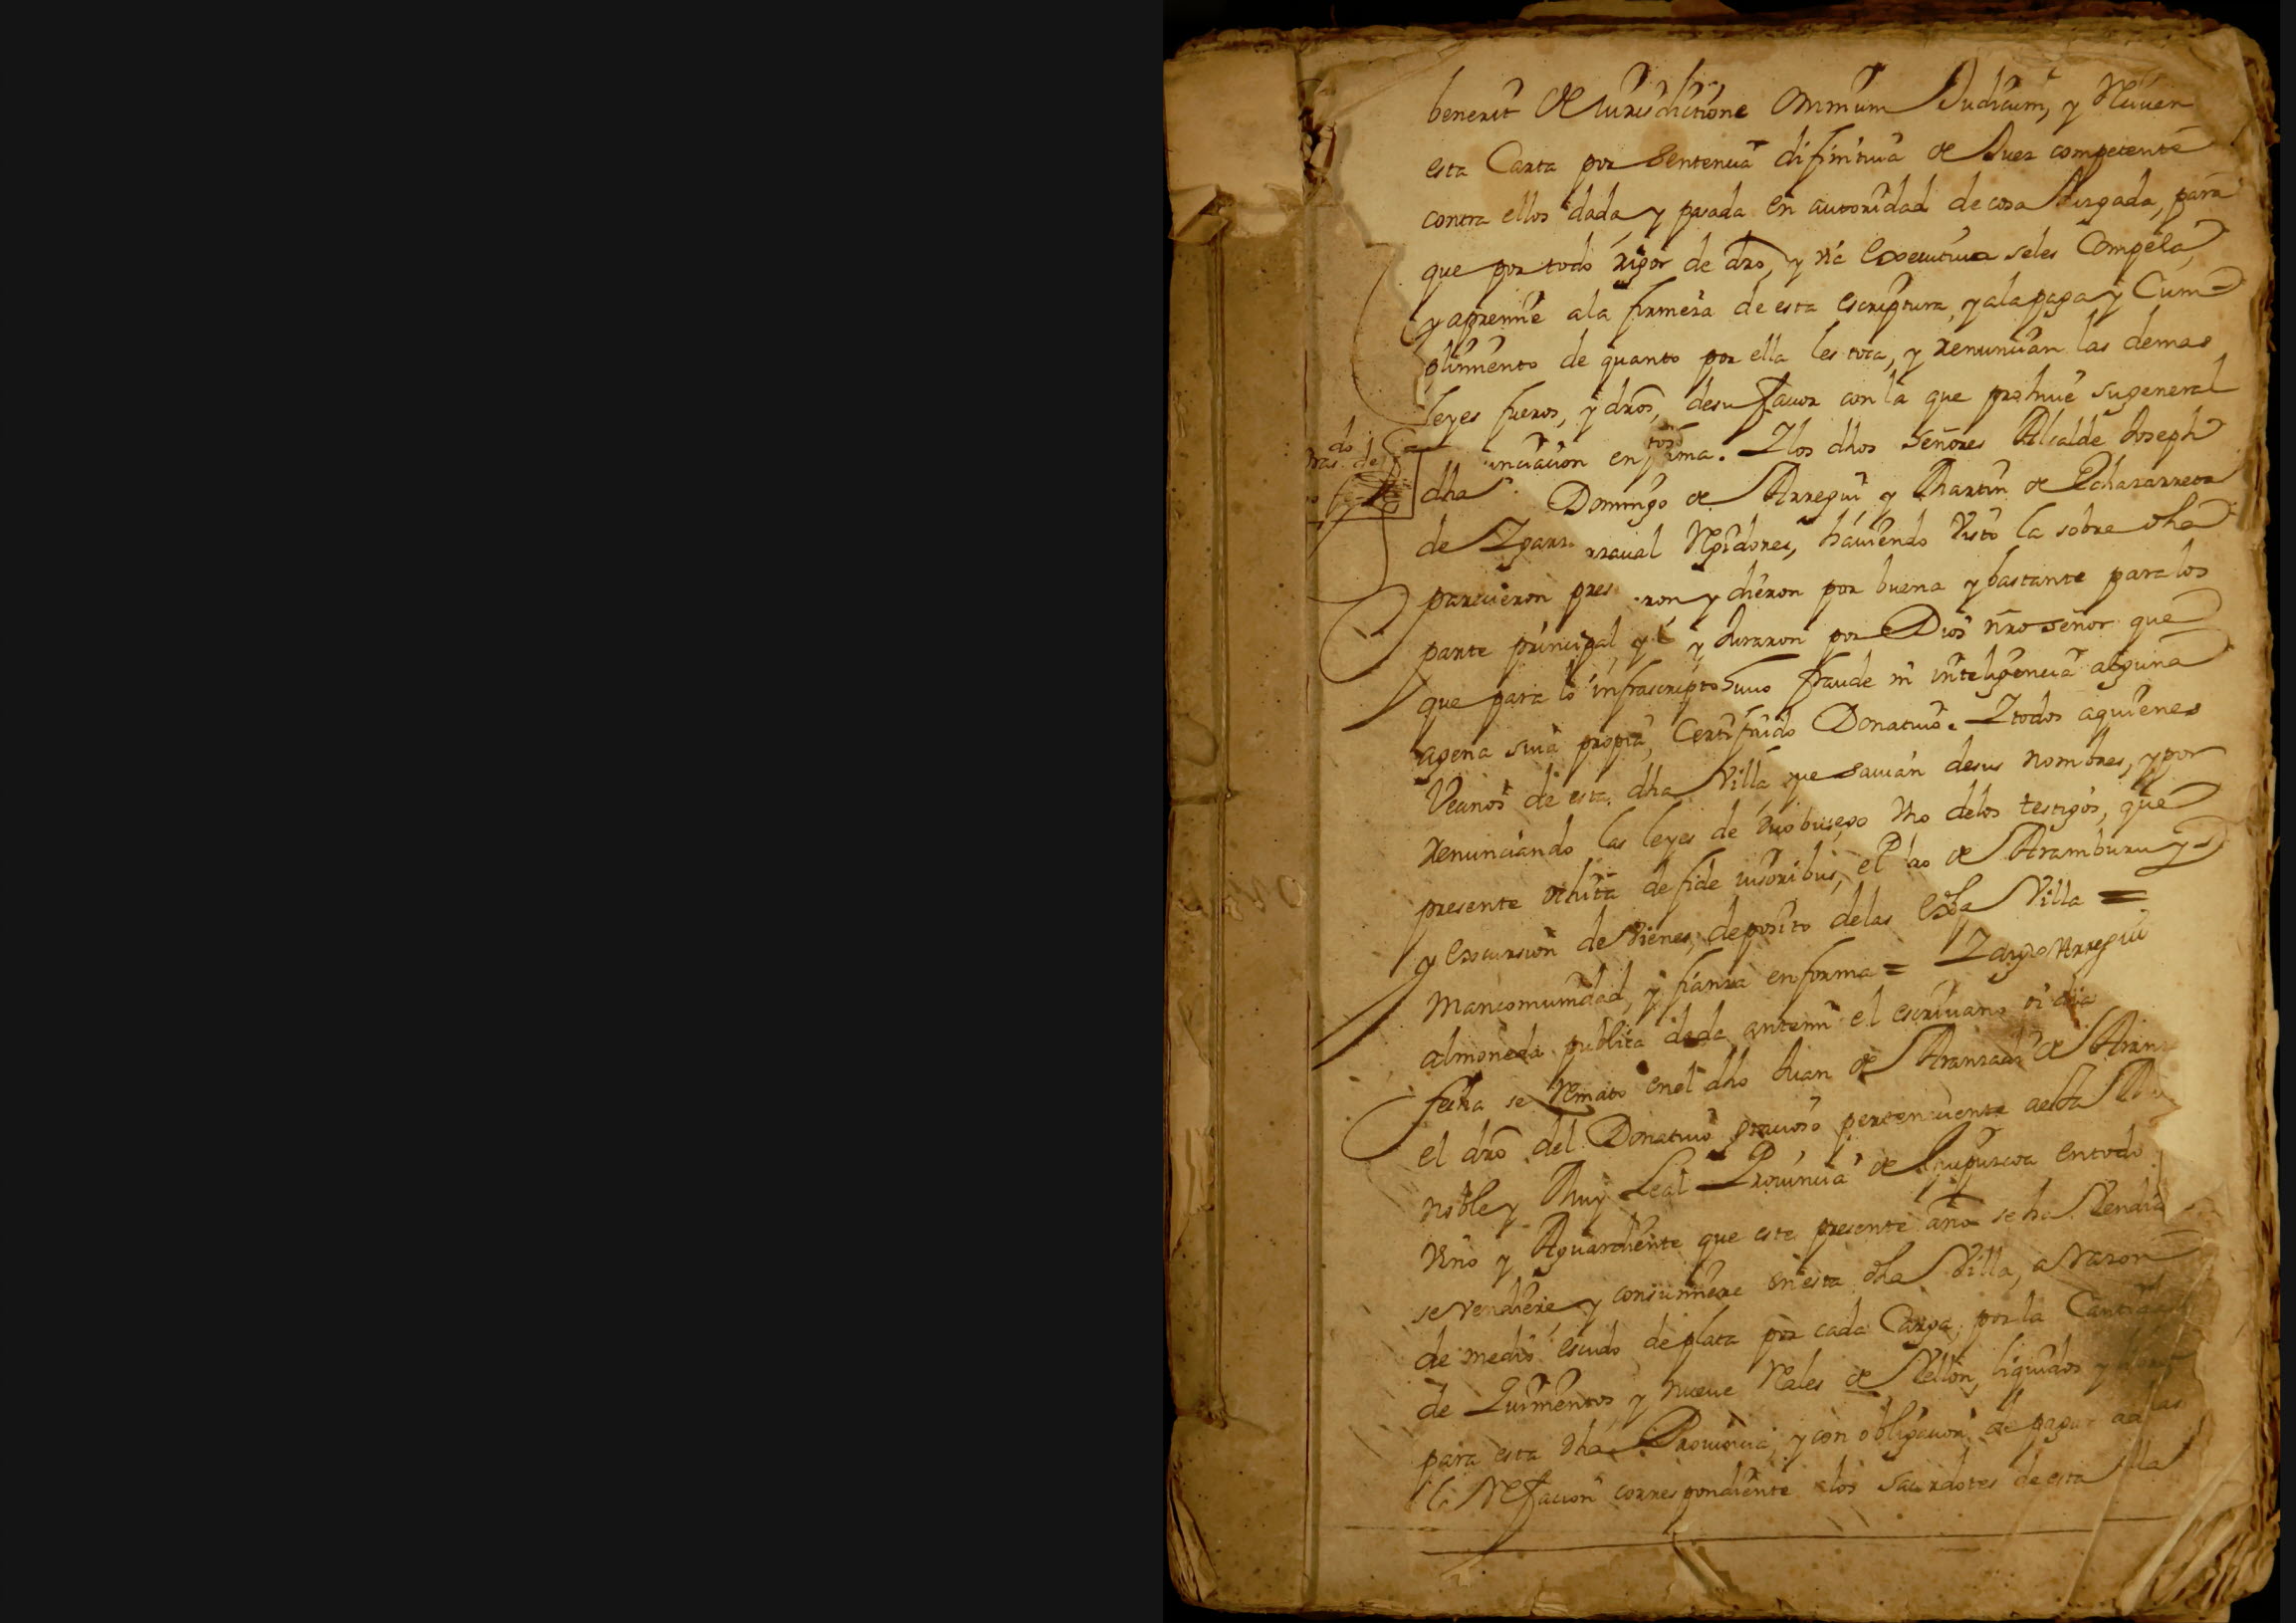 benerit de Iurisdictione omnium Iudicum, y reciuen
esta Carta por Sentencia difinitiua de Iuez competente
contra ellos dada, y pasada en autoridad de cosa Iuzgada, para
que por todo rigor de dro, y via executiua seles Compela,
y apremie ala firmeza de esta escriptura, y ala paga y Cum-
plimiento de quanto por ella les toca, y renuncian las demas
leyes fueros, y dros, desu fauor con la que prohiue su general
nciacion en forma. Y los dhos Señores Alcalde Joseph
dha Domingo de Arregui y Martin de Echazarreta
de Yparr rraual Regidores, hauiendo visto la sobre dha
parecieron pres ron y dieron por buena y bastante para los
parte principal, y y Juraron por Dios nro señor que
que para lo infrascripto huuo fraude ni inteligencia alguna
agena suia propia, Donatiuo. Y todos aquienes
Vecinos de esta dha Villa que sauian desus nombres, y por
renunciando las leyes de Vno delos testigos, que
presente de fide iusoribus, el de Aramburu y
y excursion de Vienes, deposito delas Villa =
Mancomunidad, y fianza en forma = Arregui
almoneda publica dada antemi el escriuano
fecha se Remato enel dho Juan de Aranzadi de
el dro del Donatiuo gracioso perteneciente aesta
Noble y Muy Leal Prouincia de Guipuzcoa en todo
Vino y Aguardiente que este presente año se ha Vendid
se Vendiere, y consumiere en esta dha Villa, a Razon
de medio escudo de plata por cada Carga, por la Cantidad
de Quinientos y nueve Reales de Vellon, liquidos y
para esta dha Prouincia, y con obligacion de pagar
la Refacion correspondiente alos Sacerdotes de esta Villa